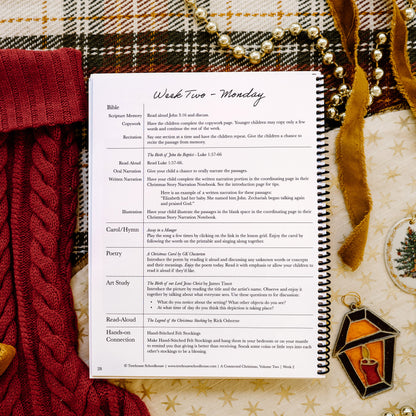 Week Two - Monday
Bible
Scripture Memory Read aloud John 3:16 and discuss.
Copywork Have the children complete the copywork page. Younger children may copy only a few
words and continue the rest of the week.
Recitation Say one section at a time and have the children repeat. Give the children a chance to
recite the passage from memory.
The Birth of John the Baptist - Luke 1:57-66
Read Aloud Read Luke 1:57-66.
Oral Narration Give your child a chance to orally narrate the passages.
Written Narration Have your child complete the written narration portion in the coordinating page in their
Christmas Story Narration Notebook. See the introduction page for tips.
Here is an example of a written narration for these passages:
"Elizabeth had her baby. She named him John. Zechariah began talking again
and praised God."
Illustration Have your child illustrate the passages in the blank space in the coordinating page in their
Christmas Story Narration Notebook.
Carol/Hymn Away in a Manger
Play the song a few times by clicking on the link in the lesson grid. Enjoy the carol by
following the words on the printable and singing along together.
Poetry A Christmas Carol by GK Chesterton
Introduce the poem by reading it aloud and discussing any unknown words or concepts
and their meanings. Enjoy the poem today. Read it with emphasis or allow your children to
read it aloud if they'd like.
Art Study The Birth of our Lord Jesus Christ by James Tissot
Introduce the picture by reading the title and the artist's name. Observe and enjoy it
together by talking about what everyone sees. Use these questions to for discussion:
• What do you notice about the setting? What other objects do you see?
• At what time of day do you think this depiction is taking place?
Read-Aloud The Legend of the Christmas Stocking by Rick Osborne
Hands-on
Connection
Hand-Stitched Felt Stockings
Make Hand-Stitched Felt Stockings and hang them in your bedroom or on your mantle
to remind you that giving is better than receiving. Sneak some coins or little toys into each
other's stockings to be a blessing.
28
© Treehouse Schoolhouse | www.treehouseschoolhouse.com | A Connected Christmas, Volume 2, Week 2